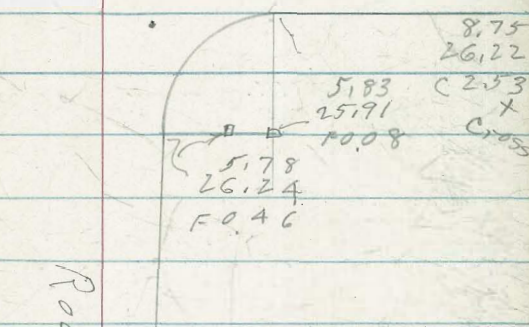 8.75
26.22
C 2.53
X
Cross
5.83
25.91
F 0.08
5.78
26.24
F 0.46